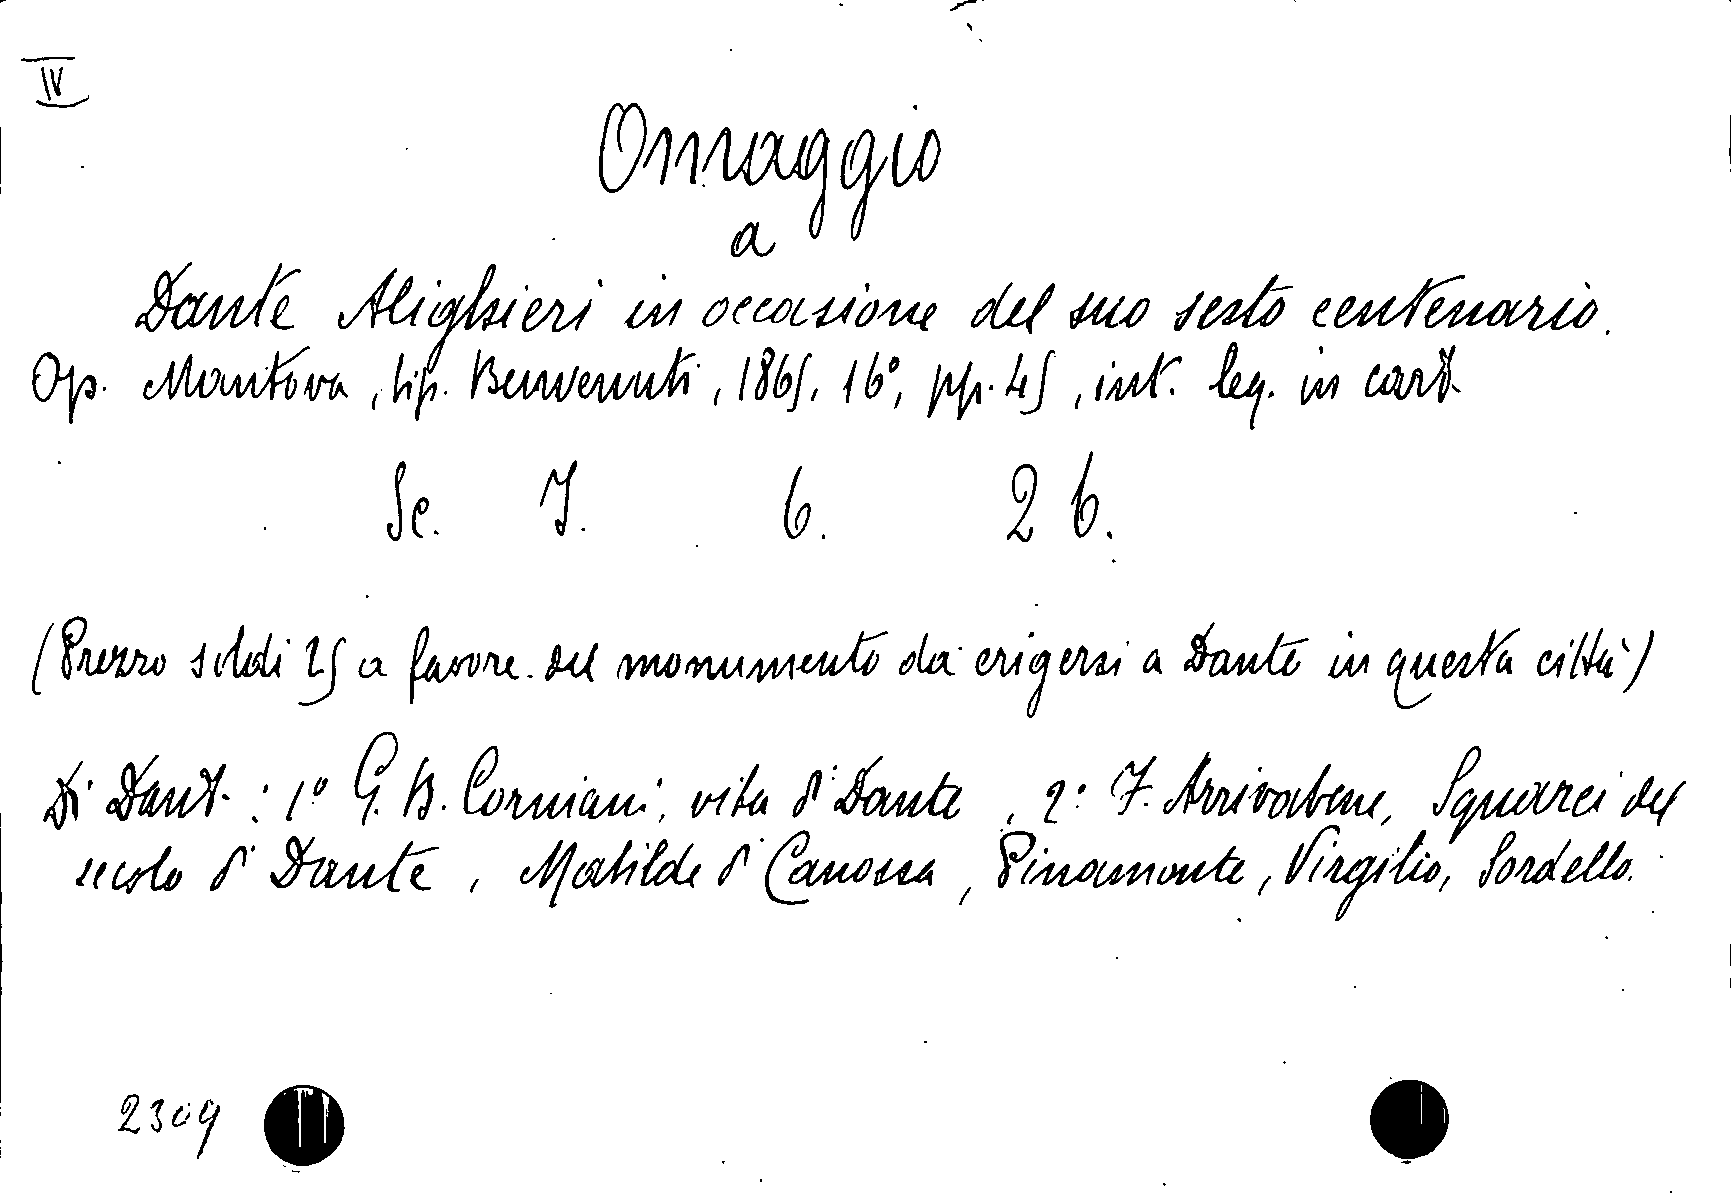 IV
Omaggio
a
Dante Alighieri in occasione del suo sesto centenario.
Op. Mantova, tip. Benvenuti, 1865, 16°, pp. 45, int. leg. in cart
Sc. I. 6. 26.
(Prezzo soldi 25 a favore del monumento da erigersi a Dante in questa città)
Di Dant. : 1° G. B. Corniani, vita di Dante, 2° F. Arrivabene, Squarci del
secolo di Dante, Matilde di Canossa, Pinamonte, Virgilio, Sordello.
2309